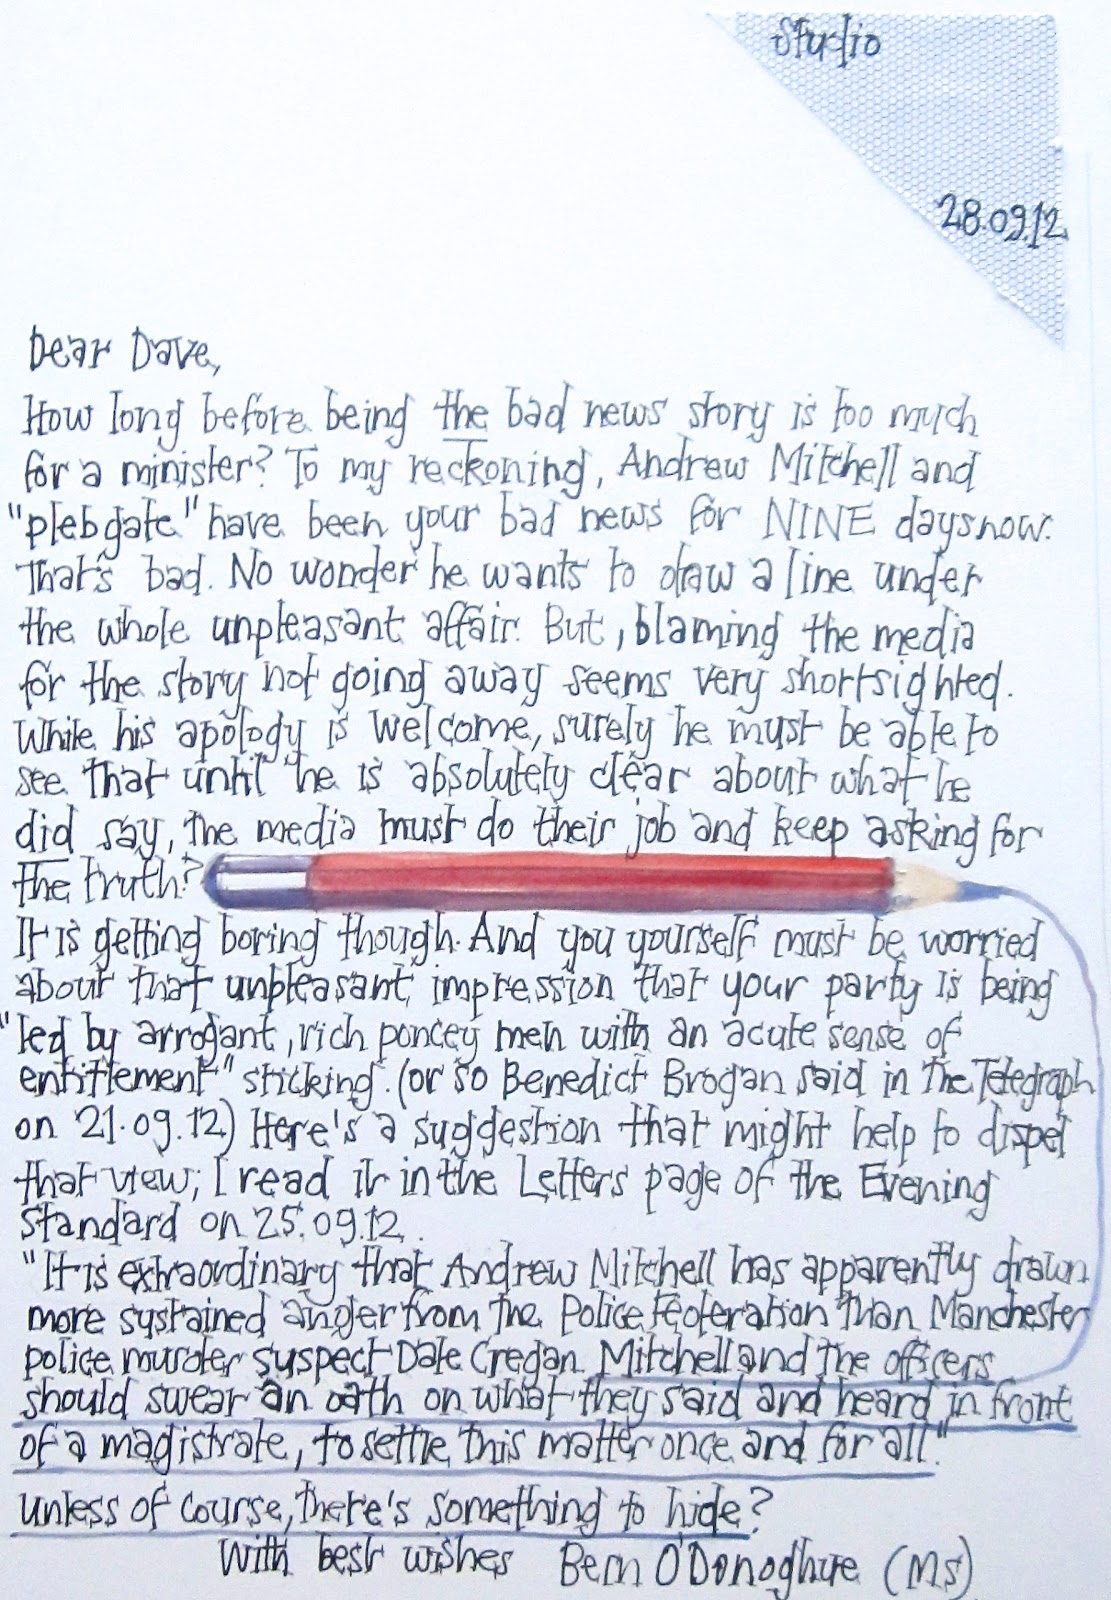 Studio
28.09.12
Dear Dave,
How long before being the bad news story is too much
for a minister? To my reckoning, Andrew Mitchell and
"plebgate" have been your bad news for NINE days now.
That's bad. No wonder he wants to draw a line under
the whole unpleasant affair. But, blaming the media
for the story not going away seems very shortsighted.
While his apology is welcome, surely he must be able to
see that until he is absolutely clear about what he
did say, the media must do their job and keep asking for
the truth?
It is getting boring though. And you yourself must be worried
about that unpleasant impression that your party is being
"led by arrogant, rich poncey men with an acute sense of
entitlement" sticking. (or so Benedict Brogan said in The Telegraph
on 21.09.12) Here's a suggestion that might help to dispel
that view; I read it in the Letters page of the Evening
Standard on 25.09.12.
"It is extraordinary that Andrew Mitchell has apparently drawn
more sustained anger from the Police Federation than Manchester
police murder suspect Dale Cregan. Mitchell and the officers
should swear an oath on what they said and heard in front
of a magistrate, to settle this matter once and for all."
unless of course, there's something to hide?
With best wishes Bern O'Donoghue (Ms)